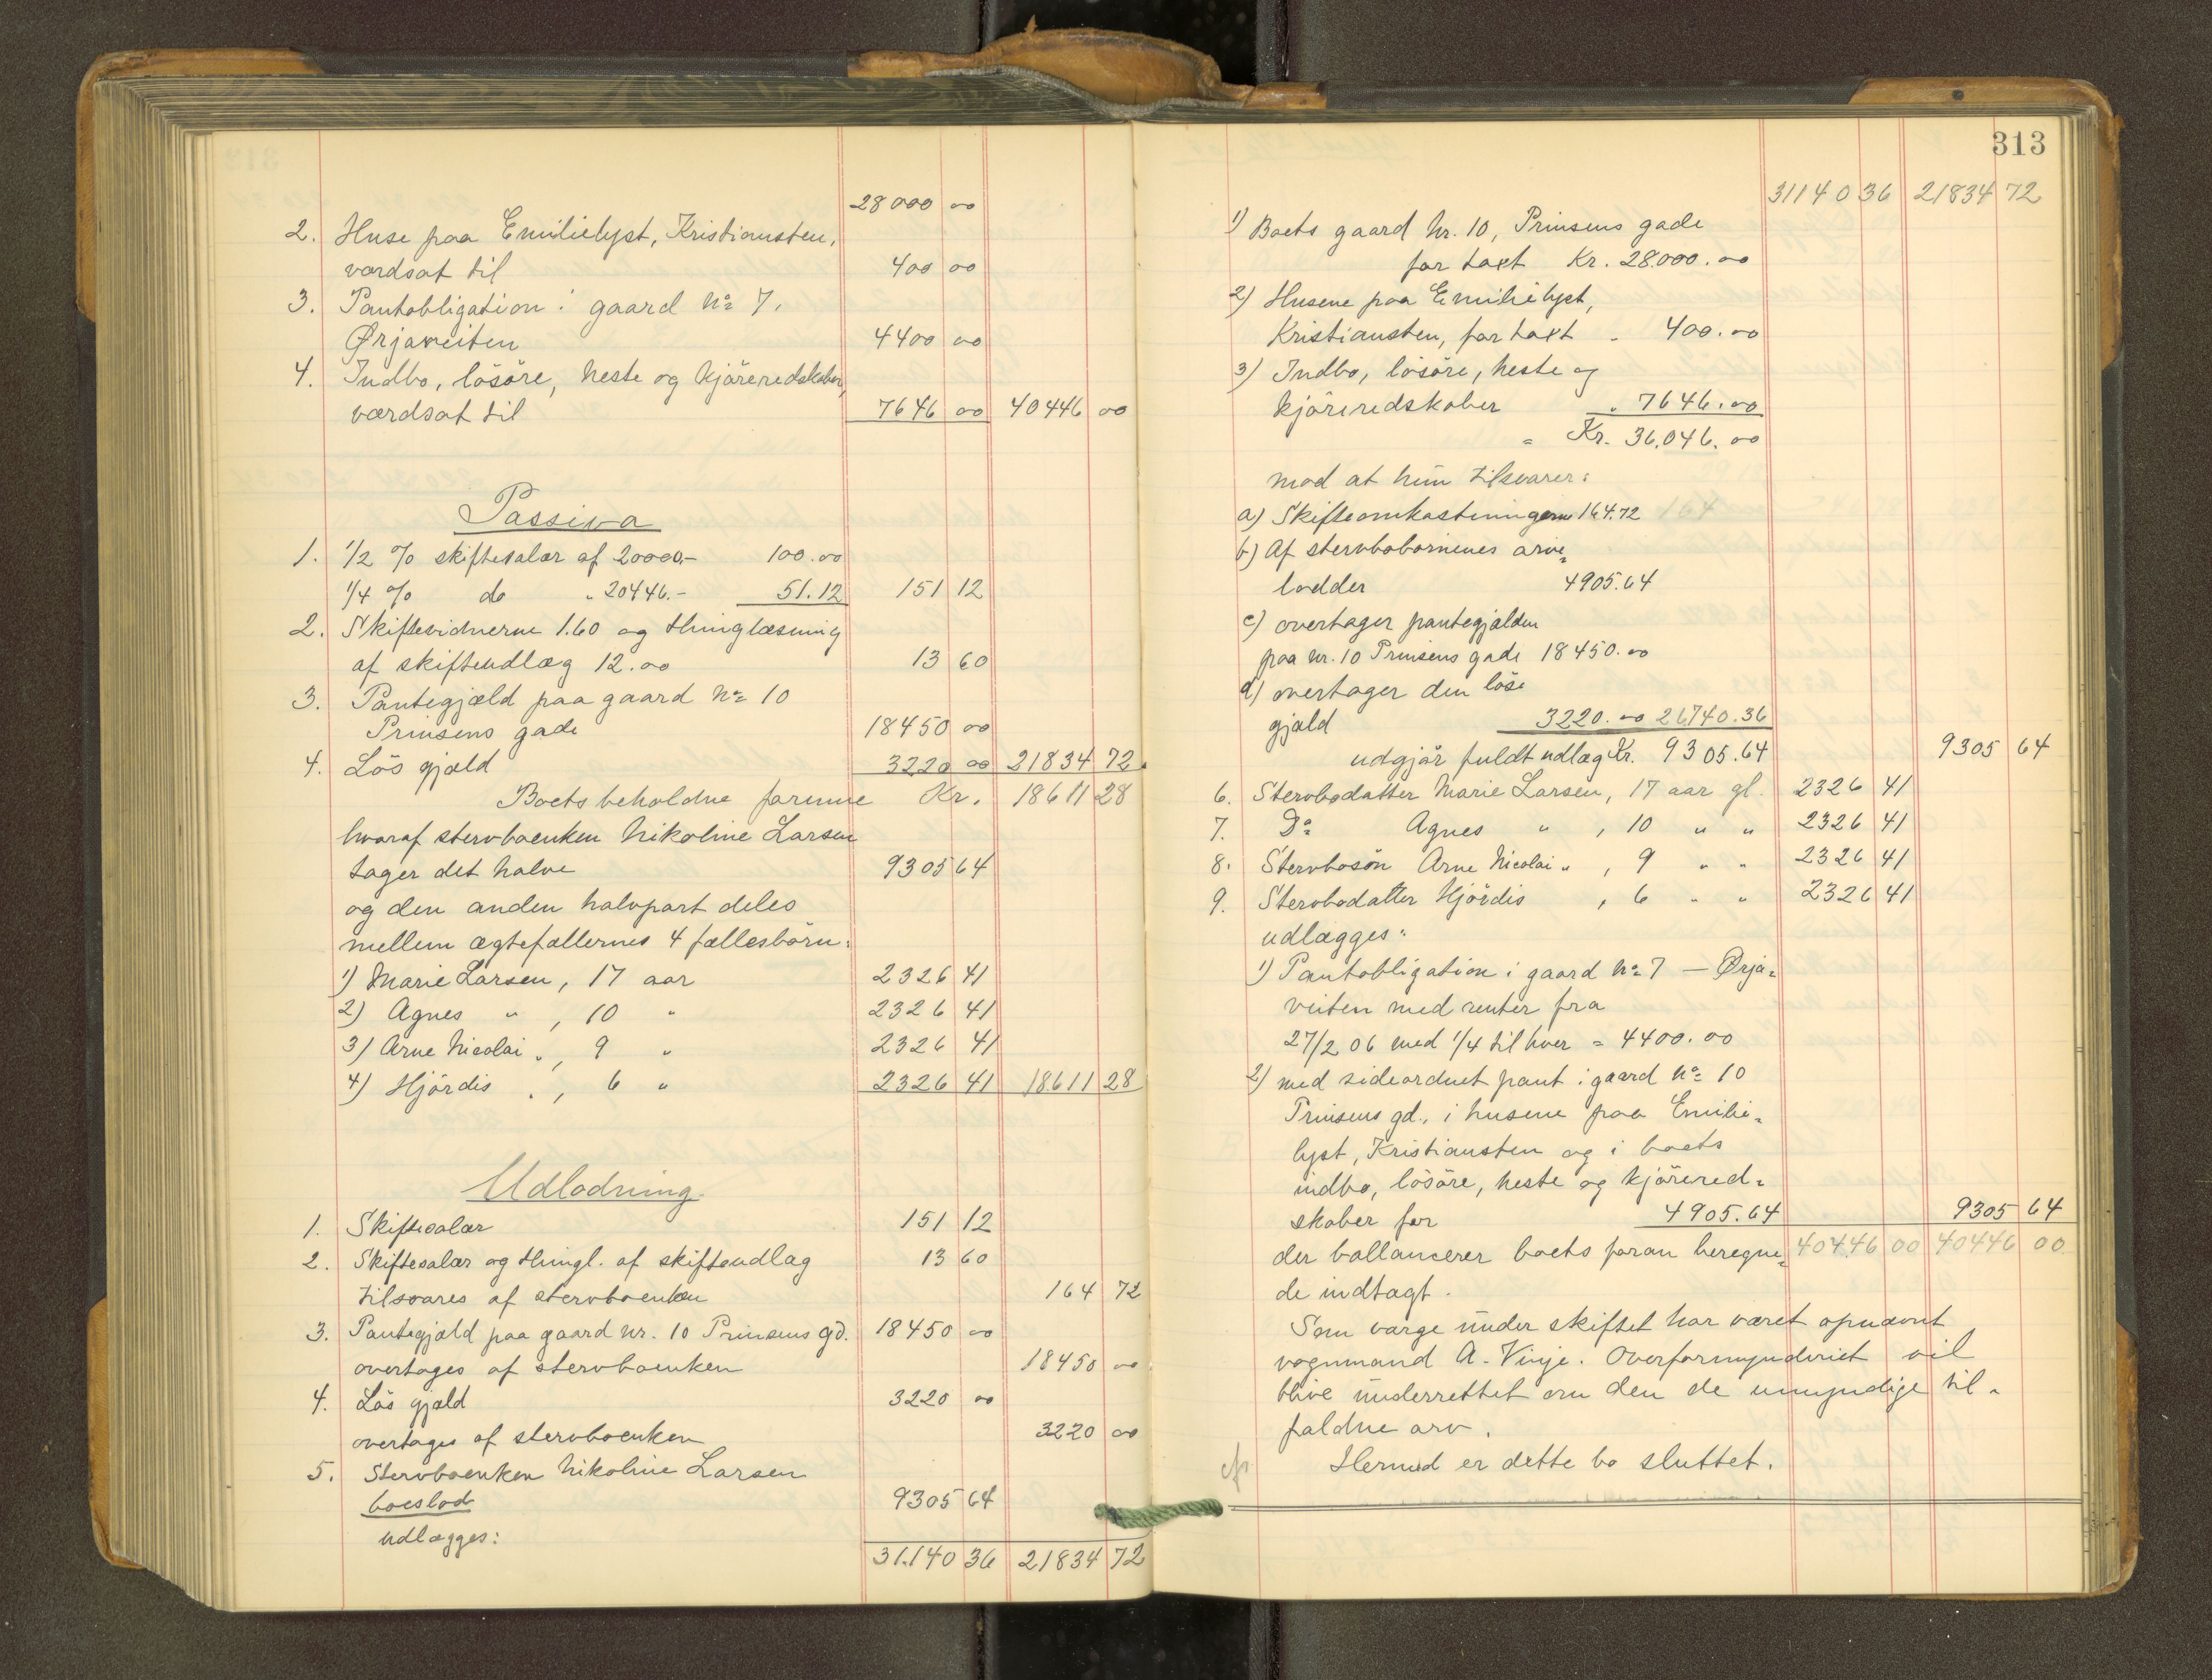 28000 00
2. Huse paa Emilielyst, Kristiansten,
værdsat til 400 00
3. Pantobligation i gaard No 7,
Ørjaveiten 4400 00
4. Indbo, lösöre, heste og kjöreredskaber,
værdsat til 7646 00 40446 00
Passiva
1. 1/2 % skiftesalær af 20000.- 100.00
1/4 % do " 20446.- 51.12 151 12
2. Skiftevidnerne 1.60 og thinglæsning
af skifteudlæg 12.00 13 60
3. Pantegjæld paa gaard No 10
Prinsens gade 18450 00
4. Lös gjæld 3220 00 21834 72
Boets beholdne formue Kr. 18611 28
hvoraf stervboenken Nikoline Larsen
tager det halve 9305 64
og den anden halvpart deles
mellem ægtefællernes 4 fællesbörn:
1) Marie Larsen, 17 aar 2326 41
2) Agnes " , 10 " 2326 41
3) Arne Nicolai " , 9 " 2326 41
4) Hjördis " , 6 " 2326 41 18611 28
Udlodning
1. Skiftesalær 151 12
2. Skiftesalær og thingl. af skifteudlæg 13 60
tilsvares af stervboenken 164 72
3. Pantegjæld paa gaard nr. 10 Prinsens gd. 18450 00
overtages af stervboenken 18450 00
4. Lös gjæld 3220 00
overtages af stervboenken 3220 00
5. Stervboenken Nikoline Larsen
boeslod 9305 64
udlægges:
31.140 36 21834 72
313
31140 36 21834 72
1) Boets gaard Nr. 10, Prinsens gade
for taxt Kr. 28.000.00
2) Husene paa Emilielyst,
Kristiansten, for taxt " 400.00
3) Indbo, lösöre, heste og
kjöreredskaber " 7646.00
= Kr. 36.046.00
mod at hun tilsvarer:
a) Skifteomkostningerne 164.72 164
b) Af stervbobörnenes arve=
lodder 4905.64
c) overtager pantegjælden
paa nr. 10 Prinsens gade 18450.00
d) overtager den löse
gjæld 3220.00 26740.36
udgjör fuldt udlæg Kr. 9305.64 9305 64
6. Stervbodatter Marie Larsen, 17 aar gl. 2326 41
7. Do Agnes " , 10 " " 2326 41
8. Stervbosön Arne Nicolai " , 9 " " 2326 41
9. Stervbodatter Hjördis , 6 " " 2326 41
udlægges:
1) Pantobligation i gaard No 7 — Ørja=
veiten med renter fra
27/2 06 med 1/4 til hver = 4400.00
2) med sideordnet pant i gaard No 10
Prinsens gd., i husene paa Emilie=
lyst, Kristiansten og i boets
indbo, lösöre, heste og kjörered=
skaber for 4905.64 9305 64
der ballancerer boets foran beregne= 40446 00 40446 00
de indtægt.
Som værge under skiftet har været opnævnt
vognmand A. Vinje. Overformynderiet vil
blive underrettet om den de umyndige til=
faldne arv.
Hermed er dette bo sluttet.